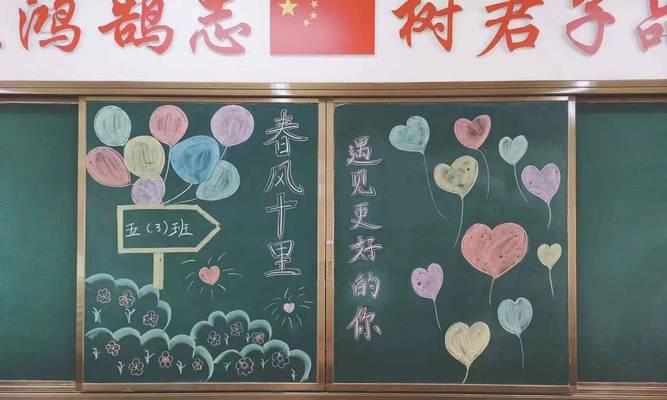 鸿鹄志 树君子品
春风十里
五(3)班
遇见更好的你